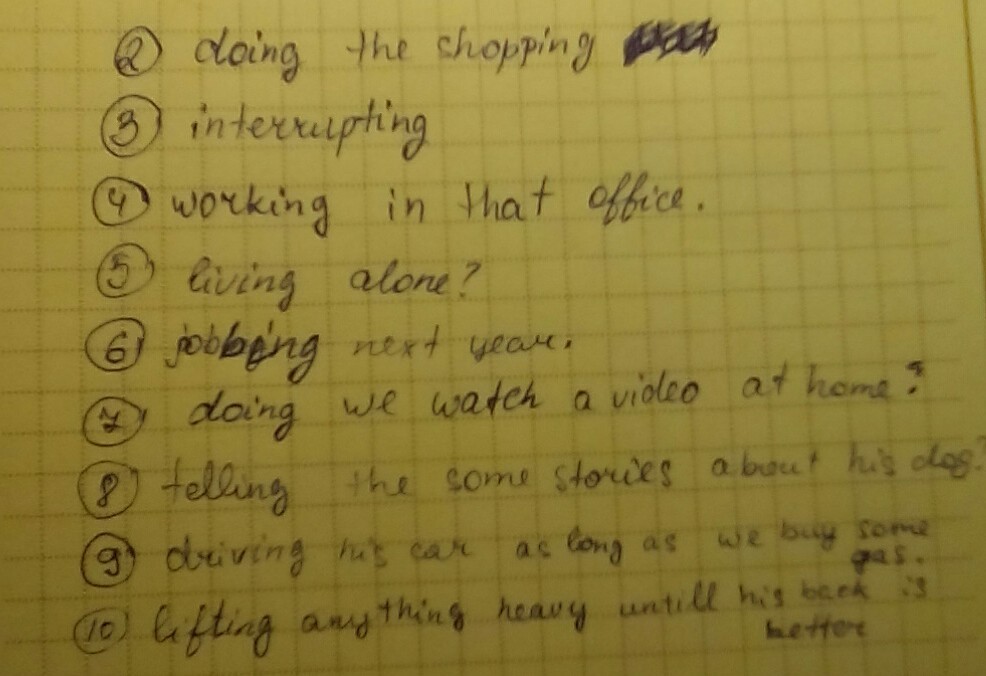 ② doing the shopping
③ interrupting
④ working in that office.
⑤ living alone?
⑥ jobbing next year.
⑦ doing we watch a video at home?
⑧ telling the some stories about his dog?
⑨ driving his car as long as we buy some
gas.
⑩ lifting anything heavy untill his back is
better